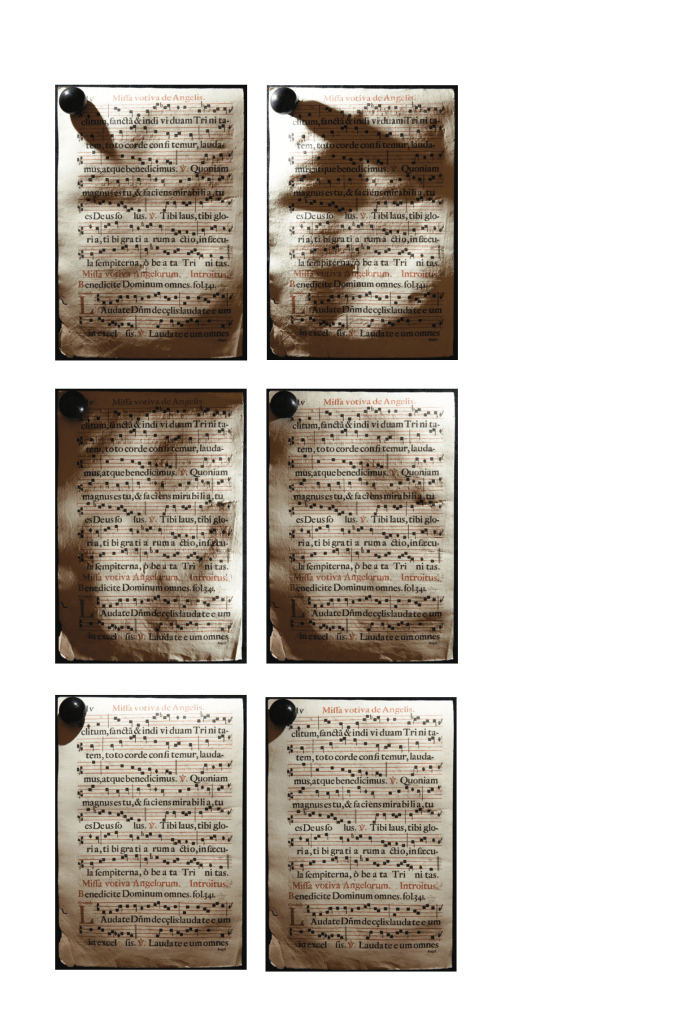 lv Miſſa votiva de Angelis.
clitum, ſanctã & indi vi duam Tri ni ta-
tem, to to corde con fi temur, lauda-
mus, atque benedicimus. ℣. Quoniam
magnus es tu, & fa ciens mirabi li a, tu
es Deus ſo lus. ℣. Tibi laus, tibi glo-
ri a, ti bi gra ti a rum a ctio, in ſæcu-
la ſempiterna, ô be a ta Tri ni tas.
Miſſa votiva Angelorum. Introitus.
Benedicite Dominum omnes. fol.341.
LAudate Dñm de cęlis lauda te e um
in excel ſis. ℣. Lauda te e um omnes
Miſſa votiva de Angelis.
clitum, ſanctã & indi vi duam Tri ni ta-
tem, to to corde con fi temur, lauda-
mus, atque benedicimus. ℣. Quoniam
magnus es tu, & fa ciens mirabi li a, tu
es Deus ſo lus. ℣. Tibi laus, tibi glo-
ri a, ti bi gra ti a rum a ctio, in ſæcu-
la ſempiterna, ô be a ta Tri ni tas.
Miſſa votiva Angelorum. Introitus.
Benedicite Dominum omnes. fol.341.
LAudate Dñm de cęlis lauda te e um
in excel ſis. ℣. Lauda te e um omnes
lv Miſſa votiva de Angelis.
clitum, ſanctã & indi vi duam Tri ni ta-
tem, to to corde con fi temur, lauda-
mus, atque benedicimus. ℣. Quoniam
magnus es tu, & fa ciens mirabi li a, tu
es Deus ſo lus. ℣. Tibi laus, tibi glo-
ri a, ti bi gra ti a rum a ctio, in ſæcu-
la ſempiterna, ô be a ta Tri ni tas.
Miſſa votiva Angelorum. Introitus.
Benedicite Dominum omnes. fol.341.
LAudate Dñm de cęlis lauda te e um
in excel ſis. ℣. Lauda te e um omnes
lv Miſſa votiva de Angelis.
clitum, ſanctã & indi vi duam Tri ni ta-
tem, to to corde con fi temur, lauda-
mus, atque benedicimus. ℣. Quoniam
magnus es tu, & fa ciens mirabi li a, tu
es Deus ſo lus. ℣. Tibi laus, tibi glo-
ri a, ti bi gra ti a rum a ctio, in ſæcu-
la ſempiterna, ô be a ta Tri ni tas.
Miſſa votiva Angelorum. Introitus.
Benedicite Dominum omnes. fol.341.
LAudate Dñm de cęlis lauda te e um
in excel ſis. ℣. Lauda te e um omnes
lv Miſſa votiva de Angelis.
clitum, ſanctã & indi vi duam Tri ni ta-
tem, to to corde con fi temur, lauda-
mus, atque benedicimus. ℣. Quoniam
magnus es tu, & fa ciens mirabi li a, tu
es Deus ſo lus. ℣. Tibi laus, tibi glo-
ri a, ti bi gra ti a rum a ctio, in ſæcu-
la ſempiterna, ô be a ta Tri ni tas.
Miſſa votiva Angelorum. Introitus.
Benedicite Dominum omnes. fol.341.
LAudate Dñm de cęlis lauda te e um
in excel ſis. ℣. Lauda te e um omnes
lv Miſſa votiva de Angelis.
clitum, ſanctã & indi vi duam Tri ni ta-
tem, to to corde con fi temur, lauda-
mus, atque benedicimus. ℣. Quoniam
magnus es tu, & fa ciens mirabi li a, tu
es Deus ſo lus. ℣. Tibi laus, tibi glo-
ri a, ti bi gra ti a rum a ctio, in ſæcu-
la ſempiterna, ô be a ta Tri ni tas.
Miſſa votiva Angelorum. Introitus.
Benedicite Dominum omnes. fol.341.
LAudate Dñm de cęlis lauda te e um
in excel ſis. ℣. Lauda te e um omnes